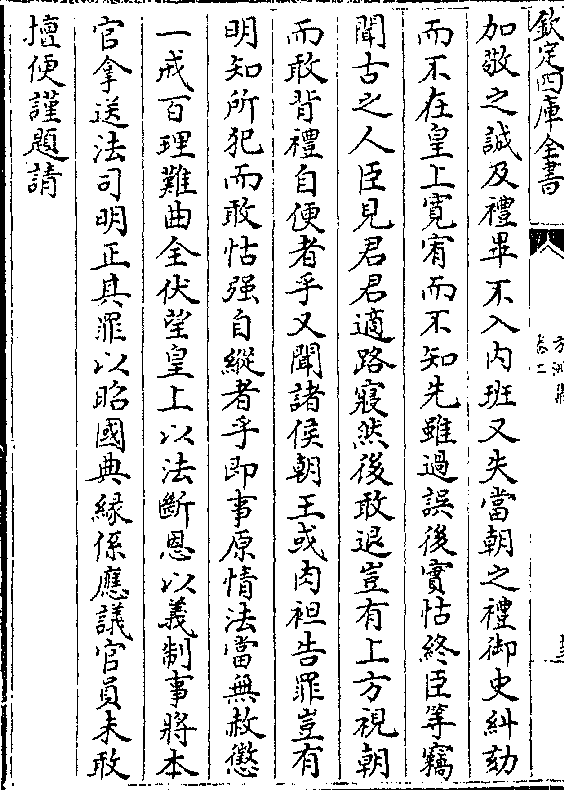 欽定四庫全書
加敬之誠及禮畢不入内班又失當朝之禮御史糾劾
而不在皇上寛宥而不知先雖過誤後實怙終臣等竊
聞古之人臣見君君適路寢然後敢退豈有上方視朝
而敢背禮自便者乎又聞諸侯朝王或肉袒告罪豈有
明知所犯而敢怙强自縱者乎即事原情法當無赦懲
一戒百理難曲全伏望皇上以法斷恩以義制事將本
官拿送法司明正其罪以昭國典緣係應議官員未敢
擅便謹題請